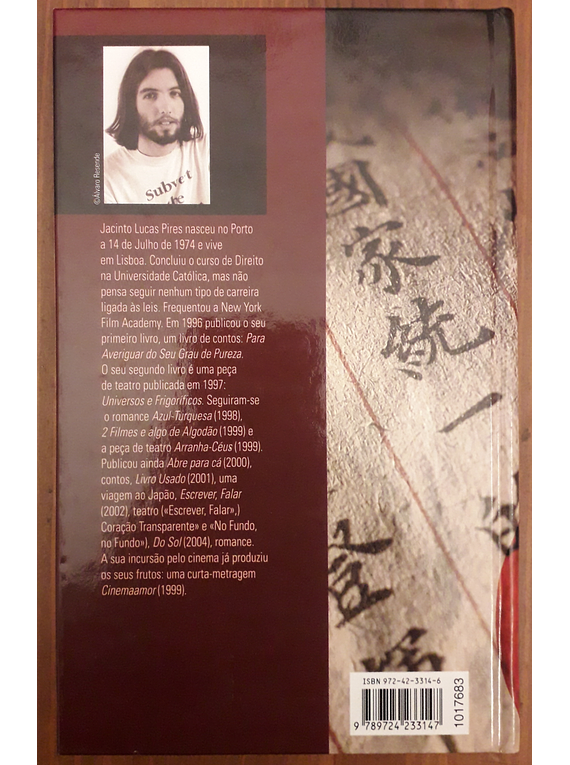 ©Álvaro Resende
Subve t
Jacinto Lucas Pires nasceu no Porto
a 14 de Julho de 1974 e vive
em Lisboa. Concluiu o curso de Direito
na Universidade Católica, mas não
pensa seguir nenhum tipo de carreira
ligada às leis. Frequentou a New York
Film Academy. Em 1996 publicou o seu
primeiro livro, um livro de contos: Para
Averiguar do Seu Grau de Pureza.
O seu segundo livro é uma peça
de teatro publicada em 1997:
Universos e Frigoríficos. Seguiram-se
o romance Azul-Turquesa (1998),
2 Filmes e algo de Algodão (1999) e
a peça de teatro Arranha-Céus (1999).
Publicou ainda Abre para cá (2000),
contos, Livro Usado (2001), uma
viagem ao Japão, Escrever, Falar
(2002), teatro («Escrever, Falar»,)
Coração Transparente» e «No Fundo,
no Fundo»), Do Sol (2004), romance.
A sua incursão pelo cinema já produziu
os seus frutos: uma curta-metragem
Cinemaamor (1999).
國
家
一
ISBN 972-42-3314-6
9 789724 233147
1017683